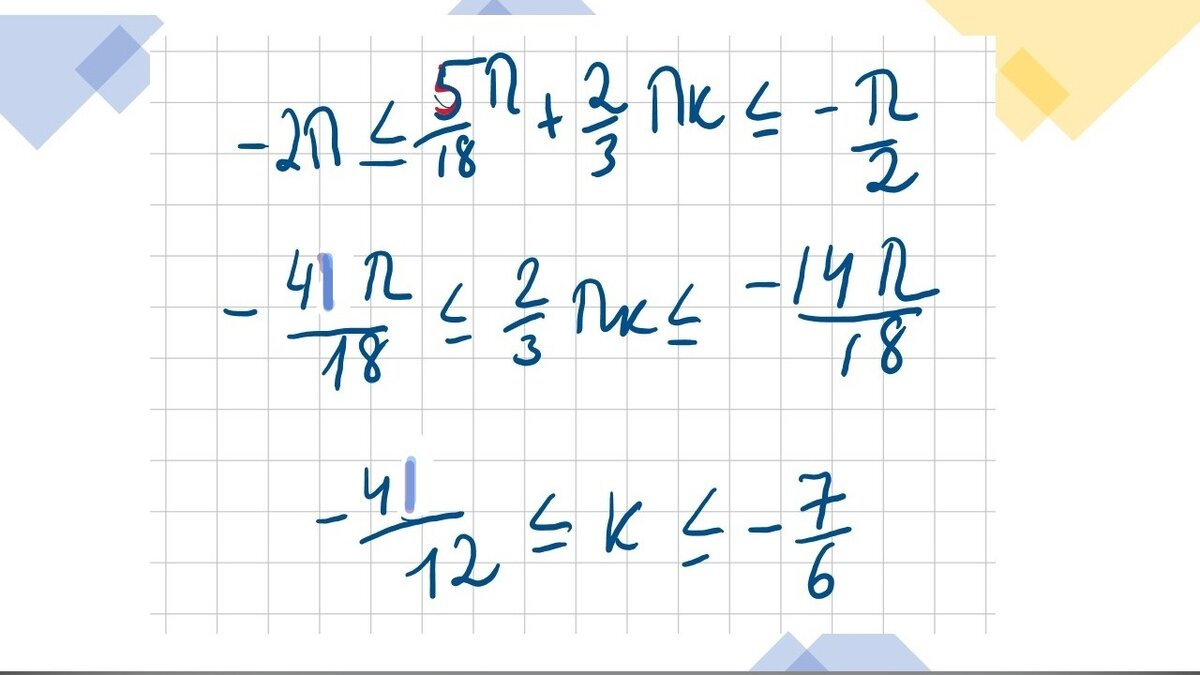 -2π ≤ 5π/18 + 2/3 πk ≤ -π/2
-41π/18 ≤ 2/3 πk ≤ -14π/18
-41/12 ≤ k ≤ -7/6